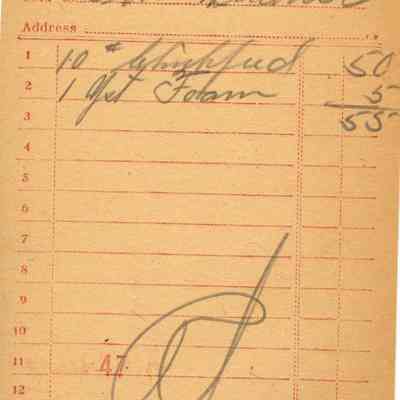 Address
1 10 # Chickfeed 50
2 1 Yst Foam 5
3 55
4
5
6
7
8
9
10
11 47
12